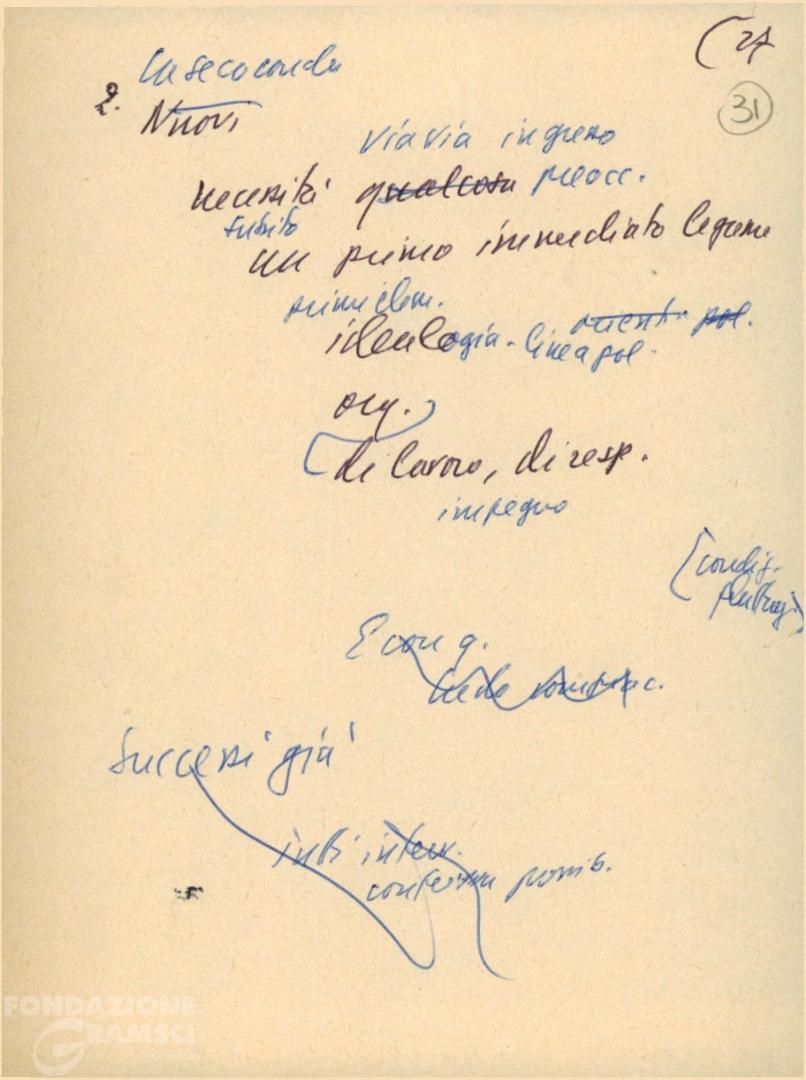 (27
31
La seconda
2. Nuovi
via via ingresso
necessità qualcosa preocc.
subito
un primo immediato legame
primi elem.
ideologia - linea pol.
orient. pol.
org.
di lavoro, di resp.
impegno
E con q.
Successi già
tutti interv.
conferma possib.
FONDAZIONE
GRAMSCI